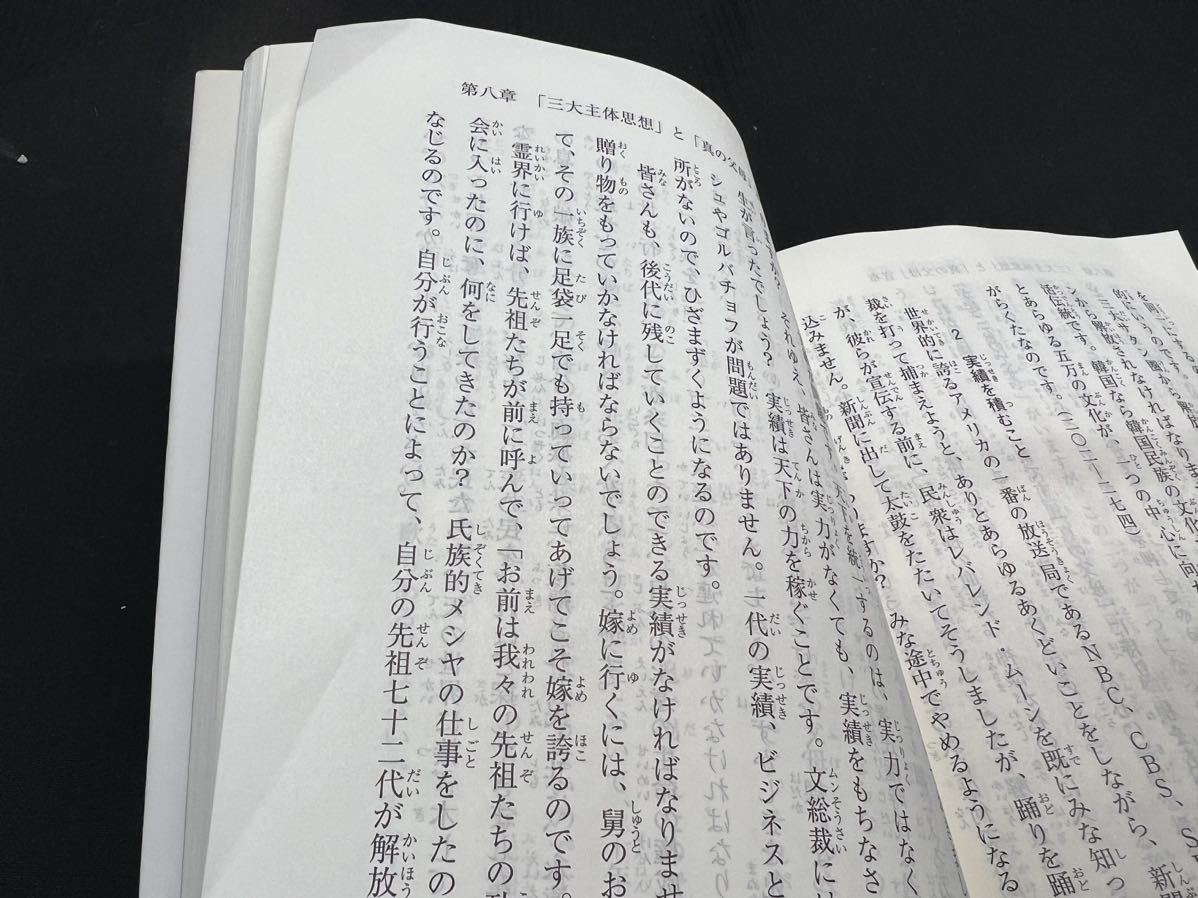 ンから解放されなければなりま
活伝統です。韓国なら韓国民族の文化
とあらゆる五万の文化が、一つの中心に向
がらくたなのです。(二〇二―二七四)
2 実績を積むこと
世界的に誇るアメリカの一番の放送局であるNBC、CBS、
裁を打って捕まえようと、ありとあらゆるあくどいことをしながら、新聞
が、彼らが宣伝する前に、民衆はレバレンド・ムーンを既にみな知っ
込みません。新聞に出して太鼓をたたいてそうしましたが、踊りを踊
ますか? みな途中でやめるようになる
第八章 「三大主体思想」と「真の父母」
を統一するのは、実力ではなく
それゆえ、皆さんは実力がなくても、実績をもちなさ
生が言ったでしょう? 実績は天下の力を稼ぐことです。文総裁には
シュやゴルバチョフが問題ではありません。一代の実績、ビジネスと
所がないので、ひざまずくようになるのです。
皆さんも、後代に残していくことのできる実績がなければなりませ
贈り物をもっていかなければならないでしょう。嫁に行くには、舅のお
て、その一族に足袋一足でも持っていってあげてこそ嫁を誇るのです。
霊界に行けば、先祖たちが前に呼んで、「お前は我々の先祖たちの
会に入ったのに、何をしてきたのか? 氏族的メシヤの仕事をしたの
なじるのです。自分が行うことによって、自分の先祖七十二代が解放